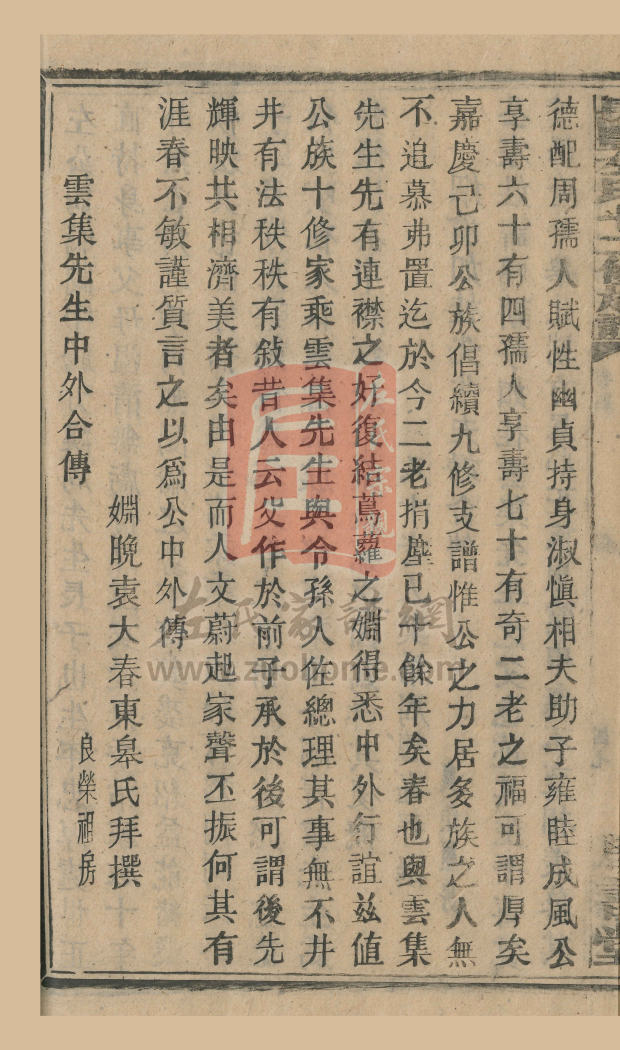 德配周孺人賦性幽貞持身淑愼相夫助子雍睦成風公
享壽六十有四孺人享壽七十有奇二老之福可謂厚矣
嘉慶己卯公族倡續九修支譜惟公之力居多族之人無
不追慕弗置迄於今二老捐塵已十餘年矣春也與雲集
先生先有連襟之好復結蔦蘿之婣得悉中外行誼兹值
公族十修家乘雲集先生與令孫人佐總理其事無不井
井有法秩秩有敍昔人云父作於前子承於後可謂後先
輝映共相濟美者矣由是而人文蔚起家聲丕振何其有
涯春不敏謹質言之以爲公中外傳
婣晚袁大春東皋氏拜撰
雲集先生中外合傳
良榮祖房
左氏宗閣
左氏家譜網
www.zgobohome.com